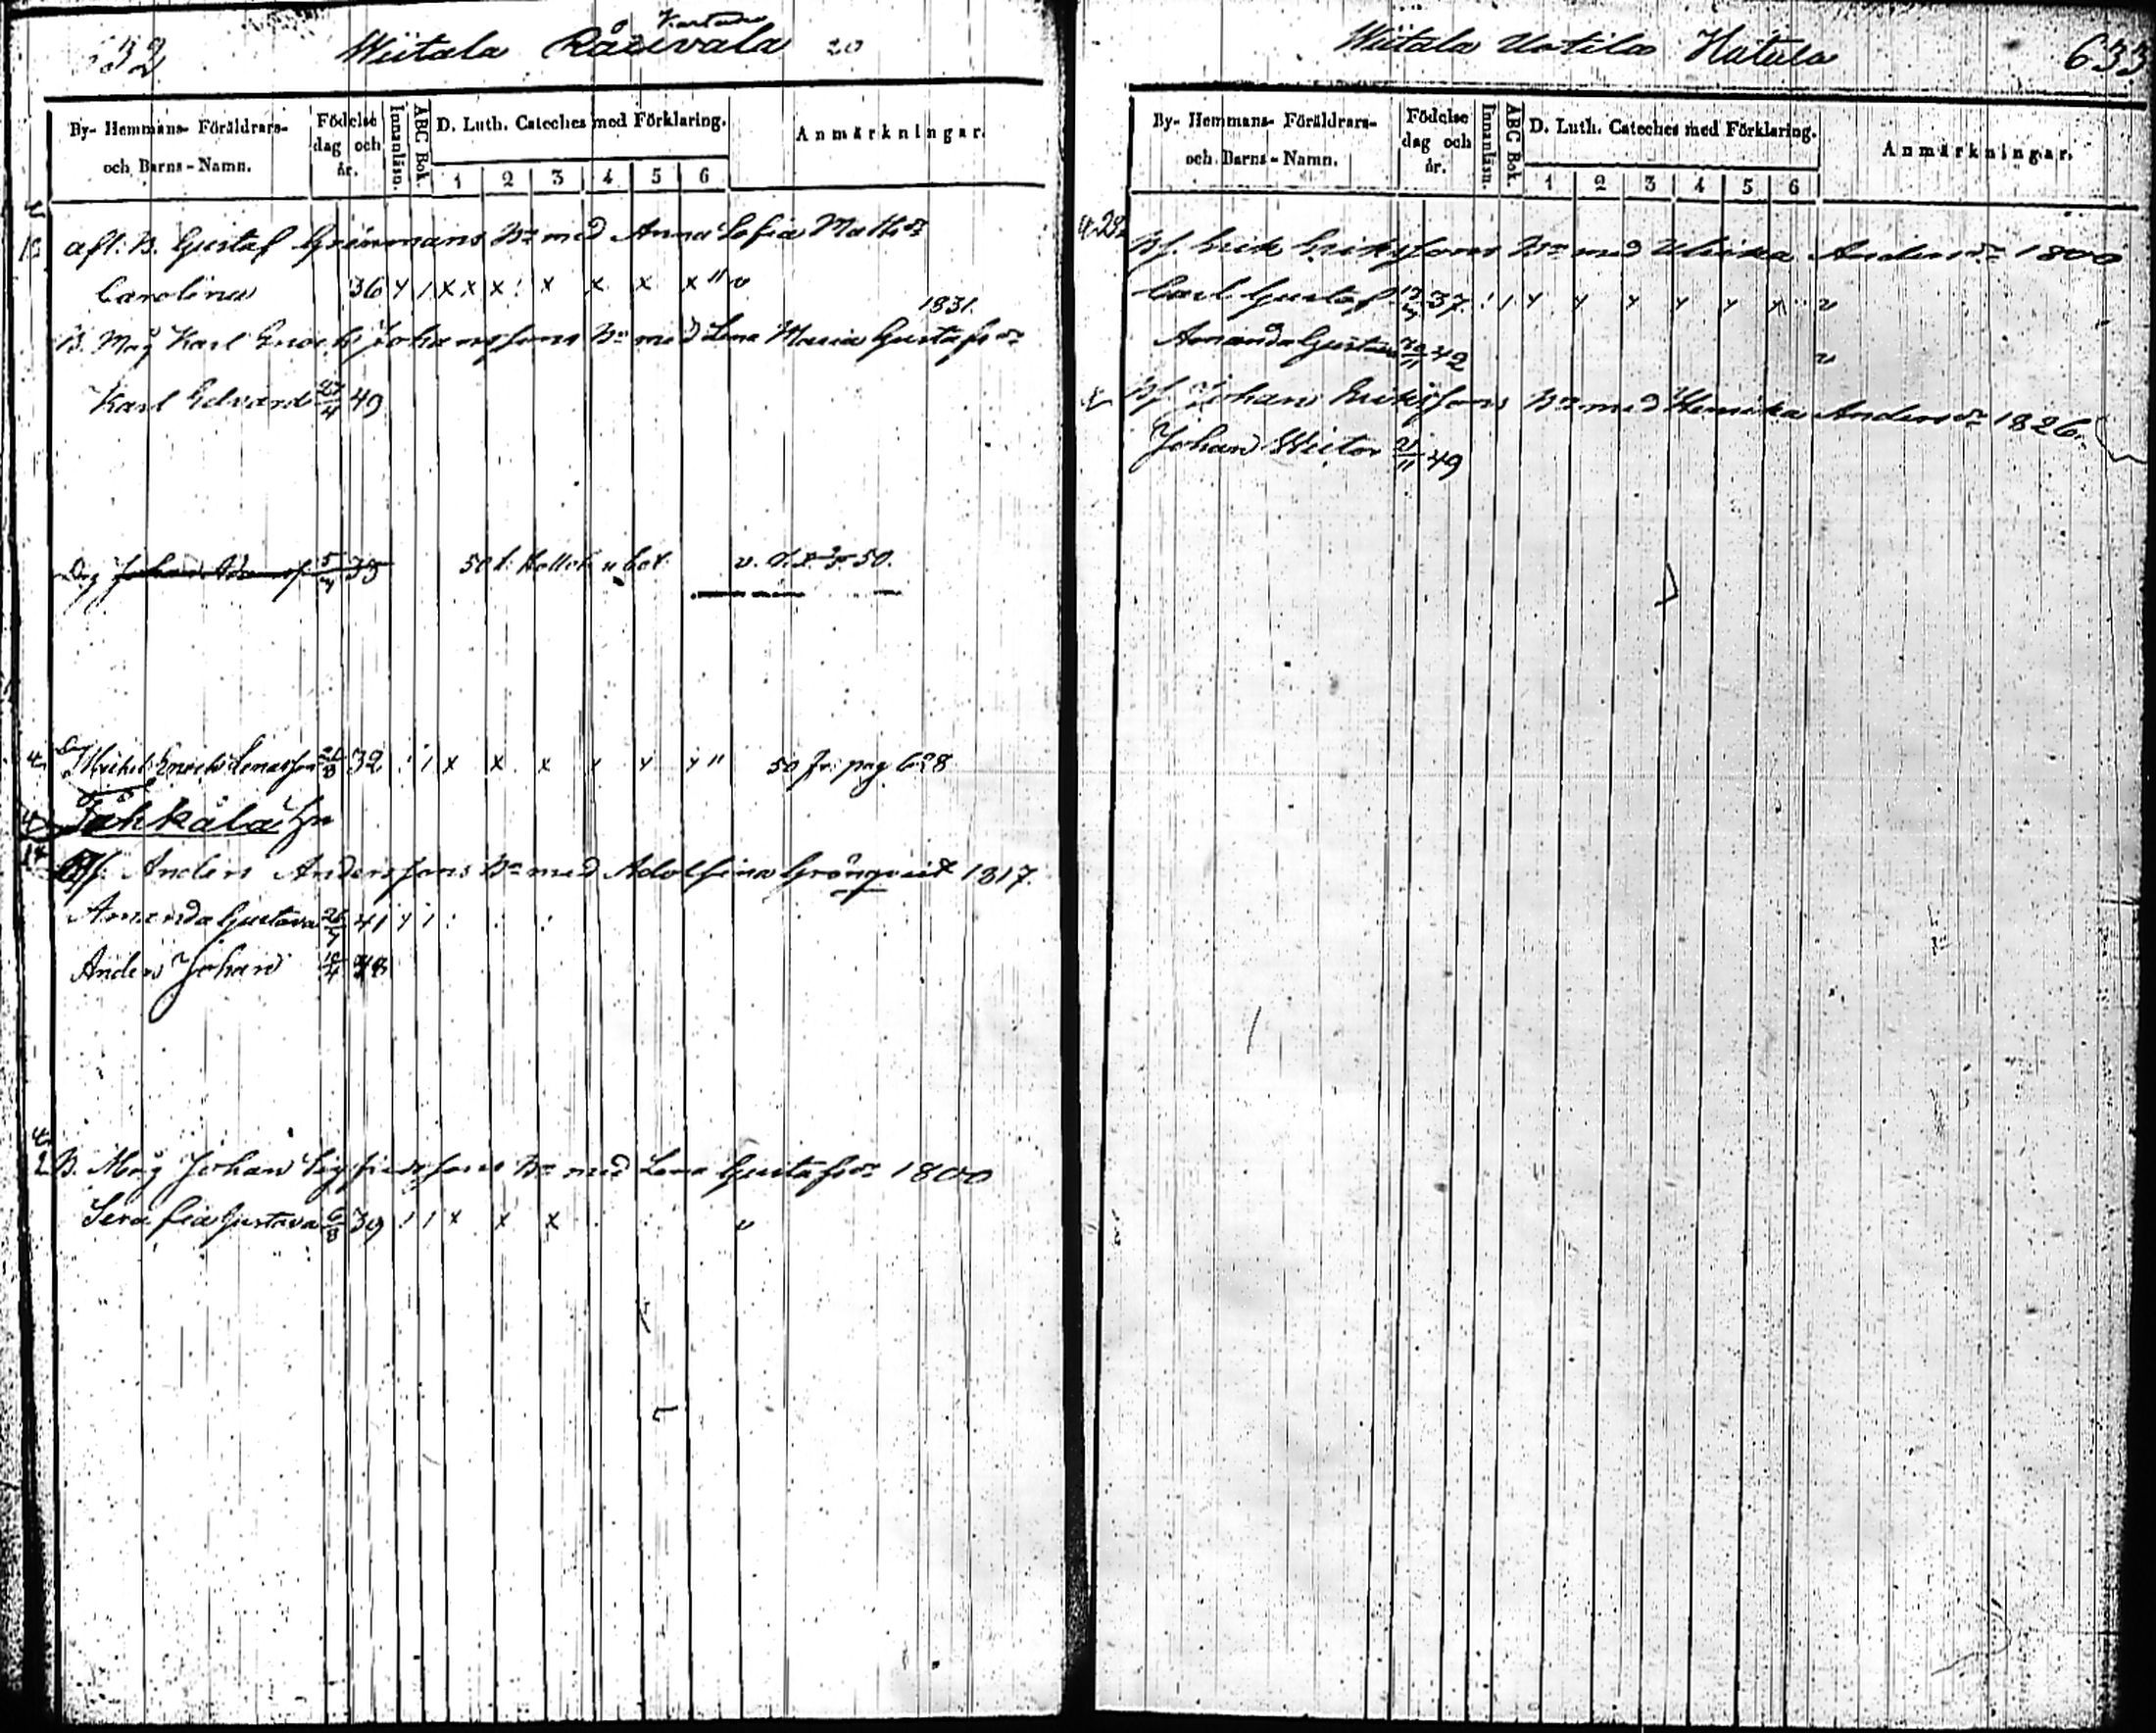 32 Wiitala Råuvala 20
By- Hemmans- Föräldrars- och Barns-Namn. Födelse dag och år. Innanläsn. ABC Bok. D. Luth. Cateches med Förklaring. Anmärkningar.
1 2 3 4 5 6
afl. B. Gustaf Grönmans Bn med Anna Sofia Mattsdr
Carolina 36 y / x x x x x x x " v
1831.
B. Måg Karl Enoch Johanssons Bn med Lena Maria Gustafsdr
Karl Edvard 27/4 49
Drg Johan 5/4 35 50 v. 50.
Drg Michel Enoch 32 ! / x x x y y y " 50 fr. pag 628
Tåhkälä
Bf. Anders Anderssons Bn med Adolfina Grönqvist 1817.
Amanda Gustava 26/7 41 y /
Anders Johan 48
B. Måg Johan Sigfridssons Bn med Lena Gustafsdr 1800
Serafia Gustava 6/8 39 ! / x x x v
Wiitala Uotila Hiitala 633
By- Hemmans- Föräldrars- och Barns-Namn. Födelse dag och år. Innanläsn. ABC Bok. D. Luth. Cateches med Förklaring. Anmärkningar.
1 2 3 4 5 6
Bf. Erik Erikssons Bn med Ulrika Andersdr 1800
Carl Gustaf 37. ! / y y y y y x v
Amanda Gustava 42 v
Bf. Johan Erikssons Bn med Henrika Andersdr 1826.
Johan Wictor 21/11 49